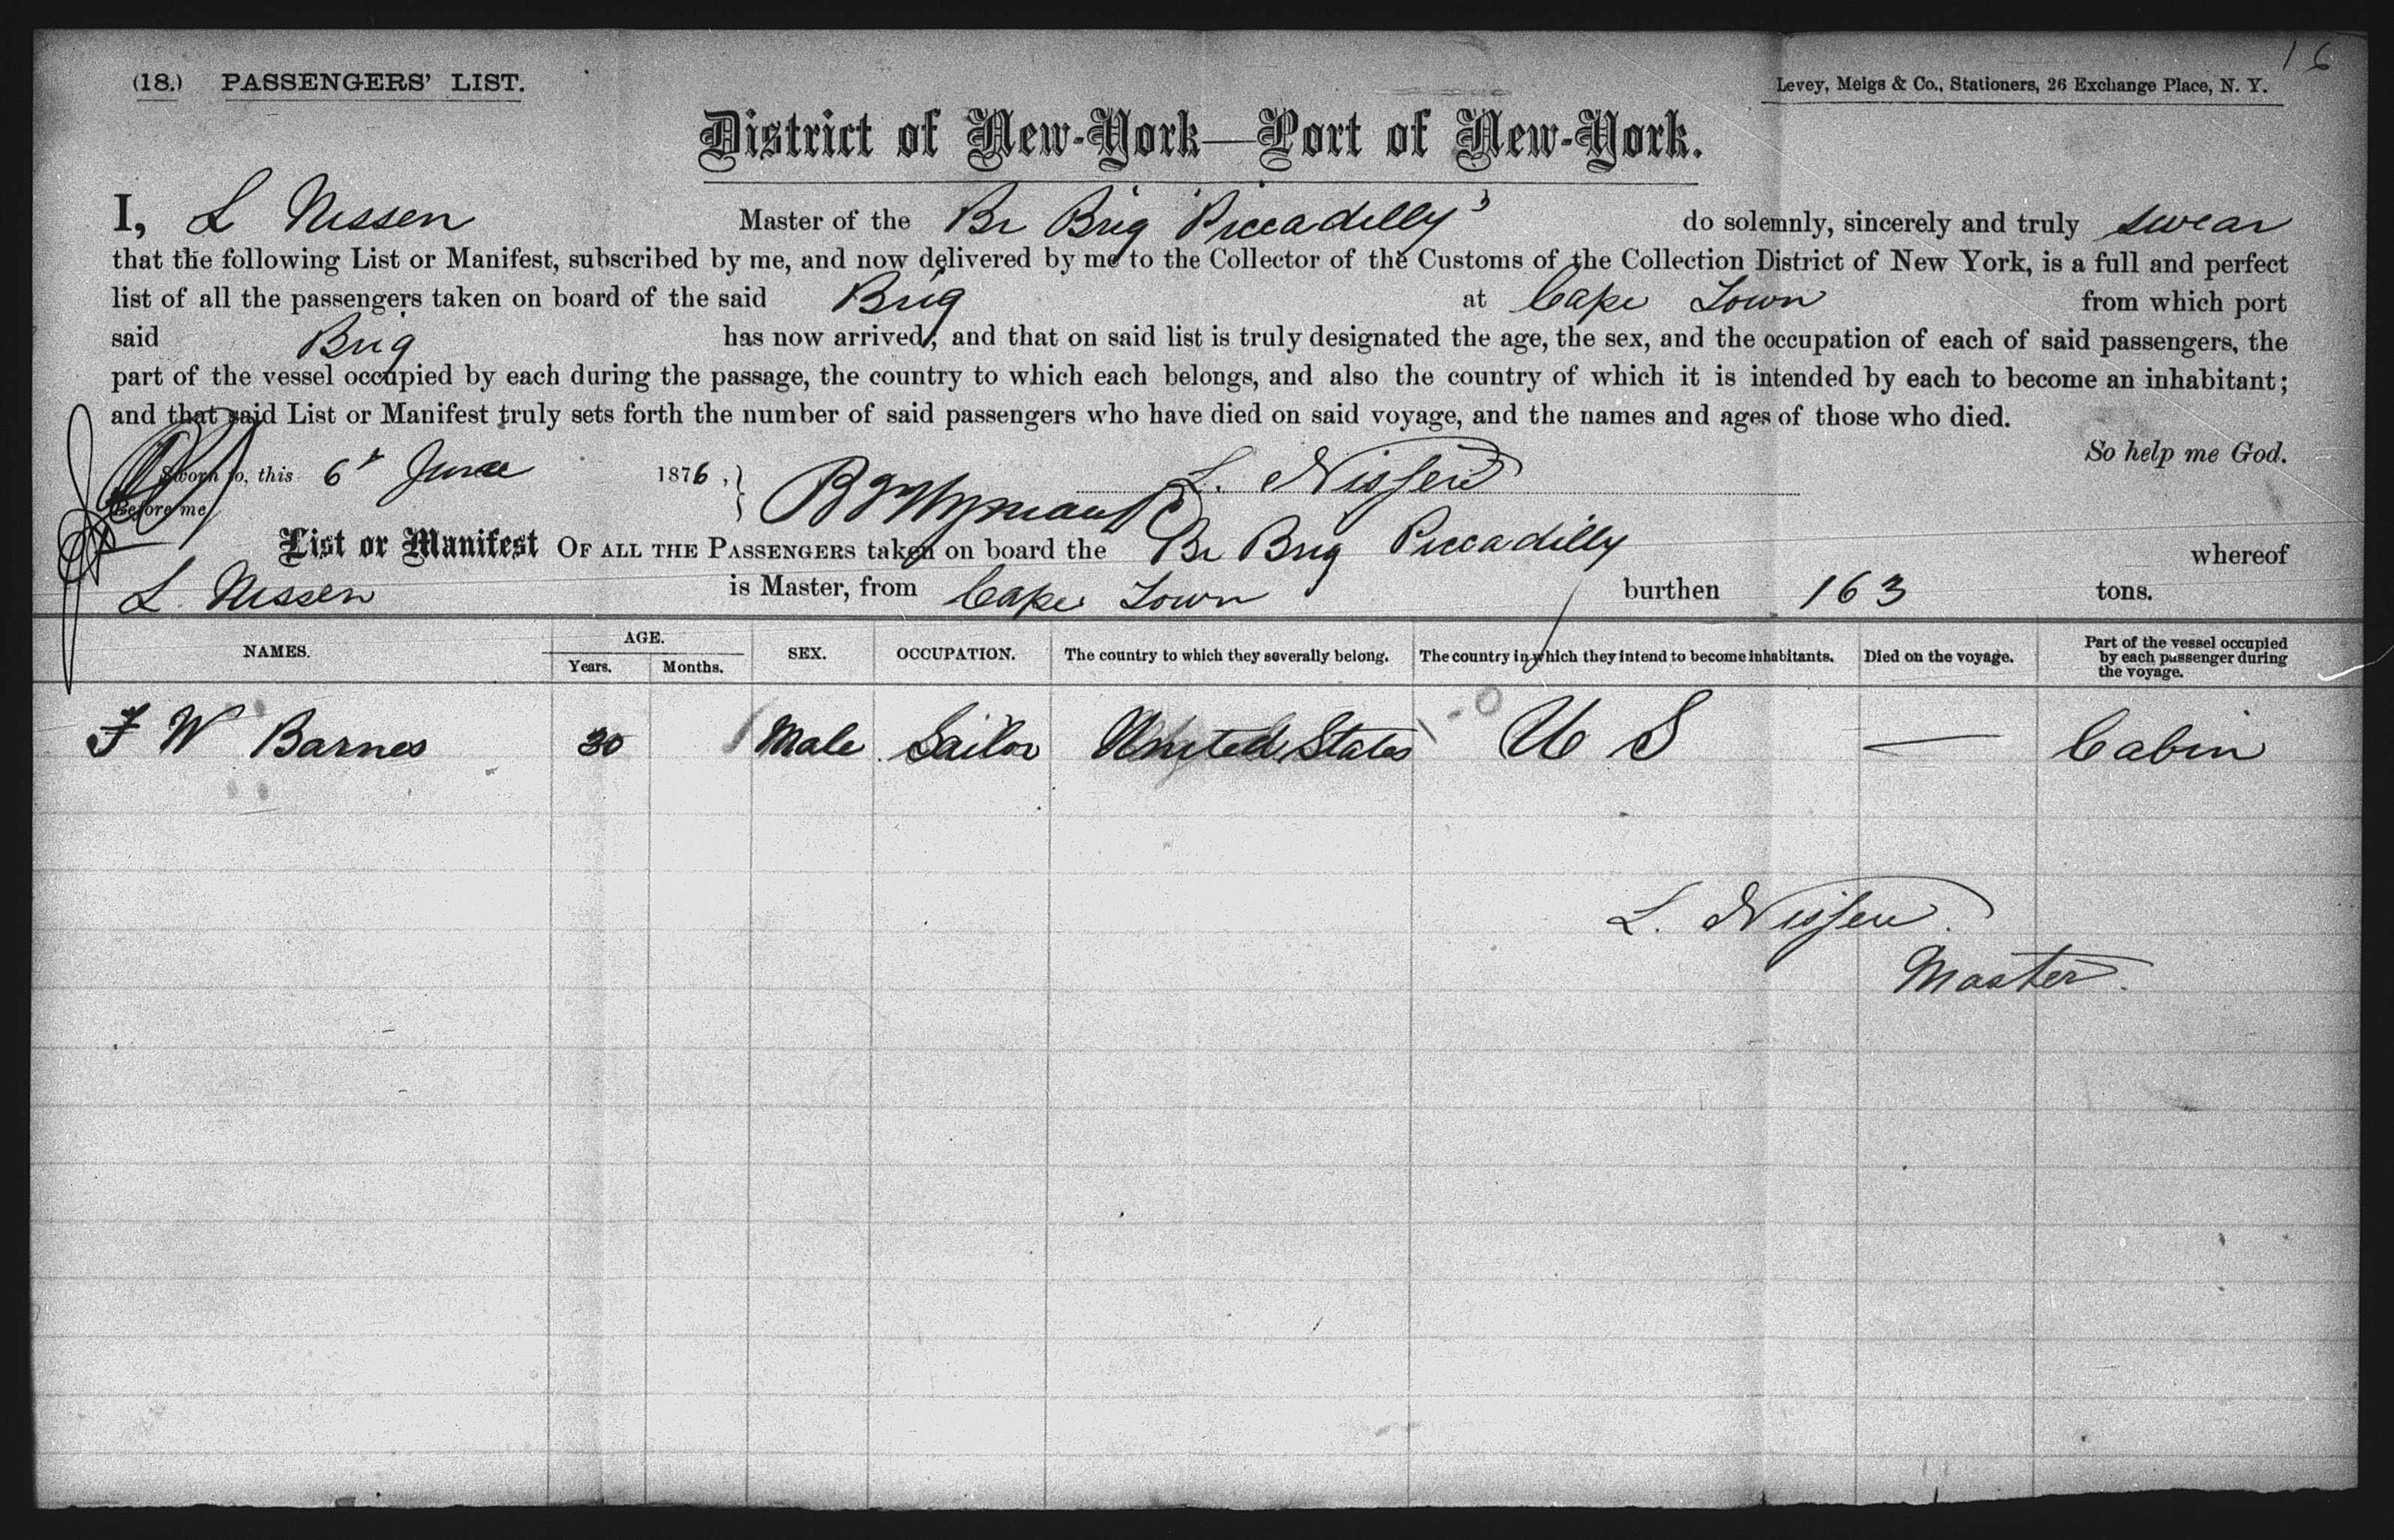 16
(18.) PASSENGERS' LIST. Levey, Meigs & Co., Stationers, 26 Exchange Place, N. Y.
District of New-York—Port of New-York.
I, L Nissen Master of the Br Brig "Piccadilly" do solemnly, sincerely and truly swear
that the following List or Manifest, subscribed by me, and now delivered by me to the Collector of the Customs of the Collection District of New York, is a full and perfect
list of all the passengers taken on board of the said Brig at Cape Town from which port
said Brig has now arrived; and that on said list is truly designated the age, the sex, and the occupation of each of said passengers, the
part of the vessel occupied by each during the passage, the country to which each belongs, and also the country of which it is intended by each to become an inhabitant;
and that said List or Manifest truly sets forth the number of said passengers who have died on said voyage, and the names and ages of those who died.
So help me God.
Sworn to, this 6 June 1876, L. Nissen
Before me
List or Manifest OF ALL THE PASSENGERS taken on board the Br Brig Piccadilly whereof
L. Nissen is Master, from Cape Town burthen 163 tons.
NAMES. AGE. Years. Months. SEX. OCCUPATION. The country to which they severally belong. The country in which they intend to become inhabitants. Died on the voyage. Part of the vessel occupied by each passenger during the voyage.
F W Barnes 30 Male Sailor United States U S — Cabin
L. Nissen.
Master.